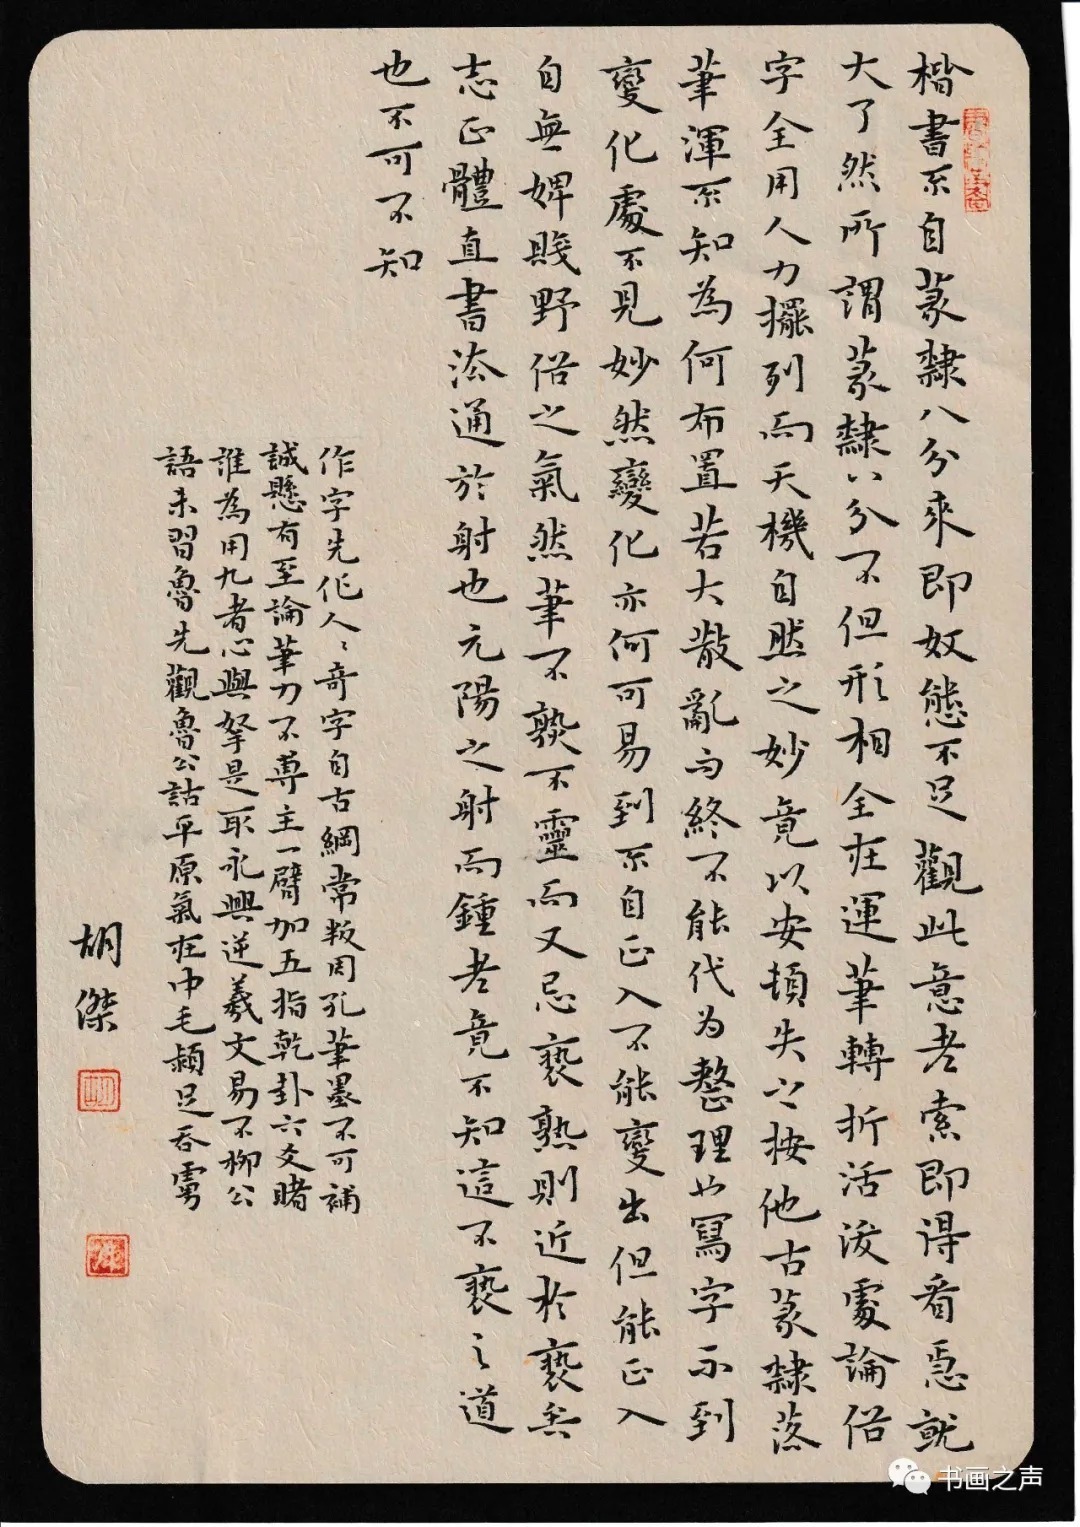 楷書不自篆隸八分來即奴態不足觀此意老索即得看急就
大了然所謂篆隸八分不但形相全在運筆轉折活潑處論俗
字全用人力擺列而天機自然之妙竟以安頓失之按他古篆隸落
筆渾不知為何布置若大散亂而終不能代为整理也寫字不到
變化處不見妙然變化亦何可易到不自正入不能變出但能正入
自無婢賤野俗之氣然筆不熟不靈而又忌褻熟則近於褻矣
志正體直書法通於射也元陽之射而鍾老竟不知這不褻之道
也不可不知
作字先作人〻奇字自古綱常叛周孔筆墨不可補
誠懸有至論筆力不專主一臂加五指乾卦六爻睹
誰為用九者心與拏是取永興逆羲文易不柳公
語未習魯先觀魯公詁平原氣在中毛穎足吞虜
胡傑
书画之声